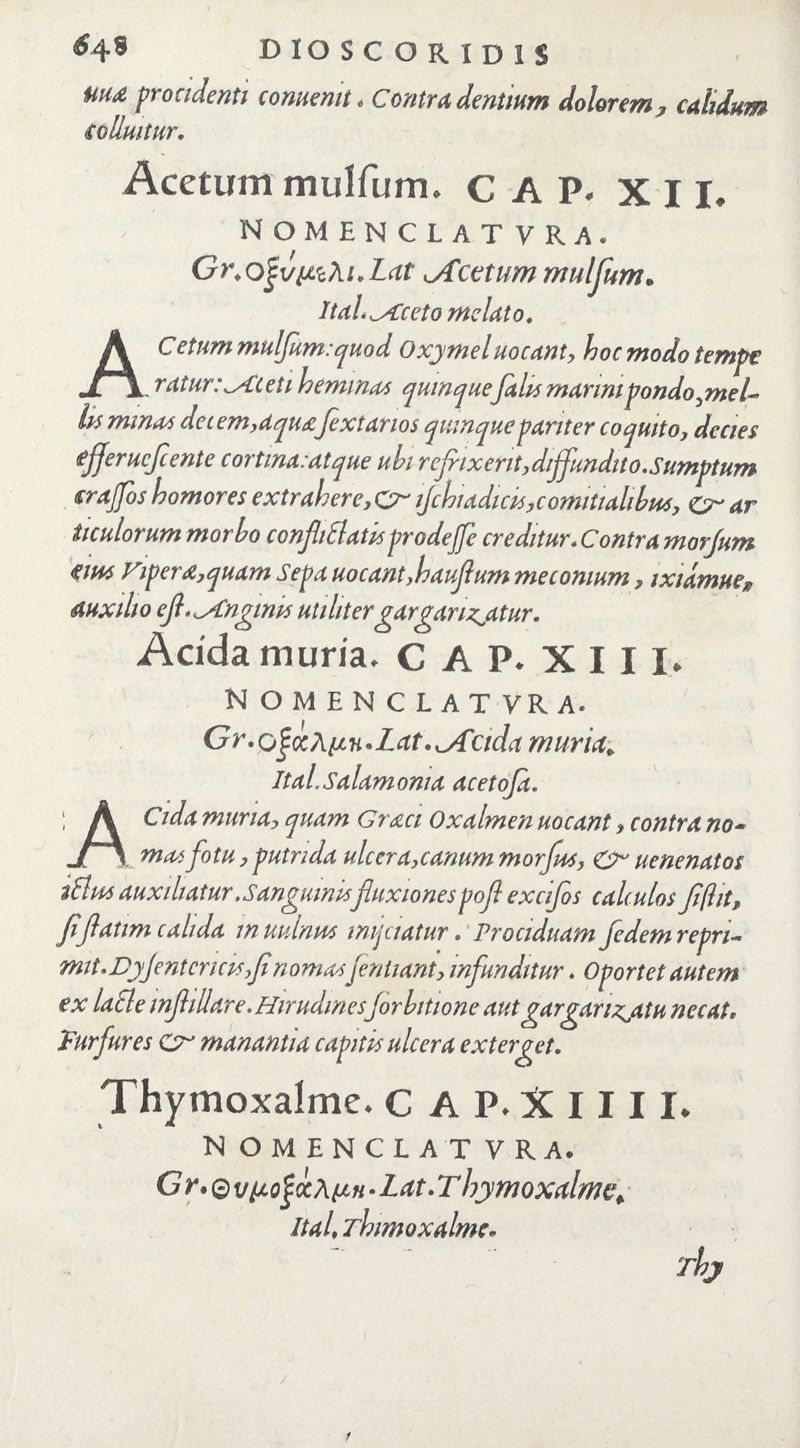 648 DIOSCORIDIS
uuæ procidenti conuenit. Contra dentium dolorem, calidum
colluitur.
Acetum mulſum. CAP. XII.
NOMENCLATVRA.
Gr. ὀξύμελι. Lat Acetum mulſum.
Ital. Aceto melato.
ACetum mulſum: quod Oxymel uocant, hoc modo tempe
ratur: Aceti heminas quinque ſalis marini pondo, mel-
lis minas decem, aquæ ſextarios quinque pariter coquito, decies
efferueſcente cortina: atque ubi refrixerit, diffundito. Sumptum
craſſos homores extrahere, & iſchiadicis, comitialibus, & ar
ticulorum morbo conflictatis prodeſſe creditur. Contra morſum
eius Viperæ, quam Sepa uocant, hauſtum meconium, ixiámue,
auxilio eſt. Anginis utiliter gargarizatur.
Acida muria. CAP. XIII.
NOMENCLATVRA.
Gr. οξάλμη. Lat. Acida muria.
Ital. Salamonia acetoſa.
ACida muria, quam Græci Oxalmen uocant, contra no-
mas fotu, putrida ulcera, canum morſus, & uenenatos
ictus auxiliatur. Sanguinis fluxiones poſt exciſos calculos ſiſtit,
ſi ſtatim calida in uulnus inijciatur. Prociduam ſedem repri-
mit. Dyſentericis, ſi nomas ſentiant, infunditur. Oportet autem
ex lacte inſtillare. Hirudines ſorbitione aut gargarizatu necat.
Furfures & manantia capitis ulcera exterget.
Thymoxalme. CAP. XIIII.
NOMENCLATVRA.
Gr. Θυμοξάλμη. Lat. Thymoxalme.
Ital. Thimoxalme.
Thy